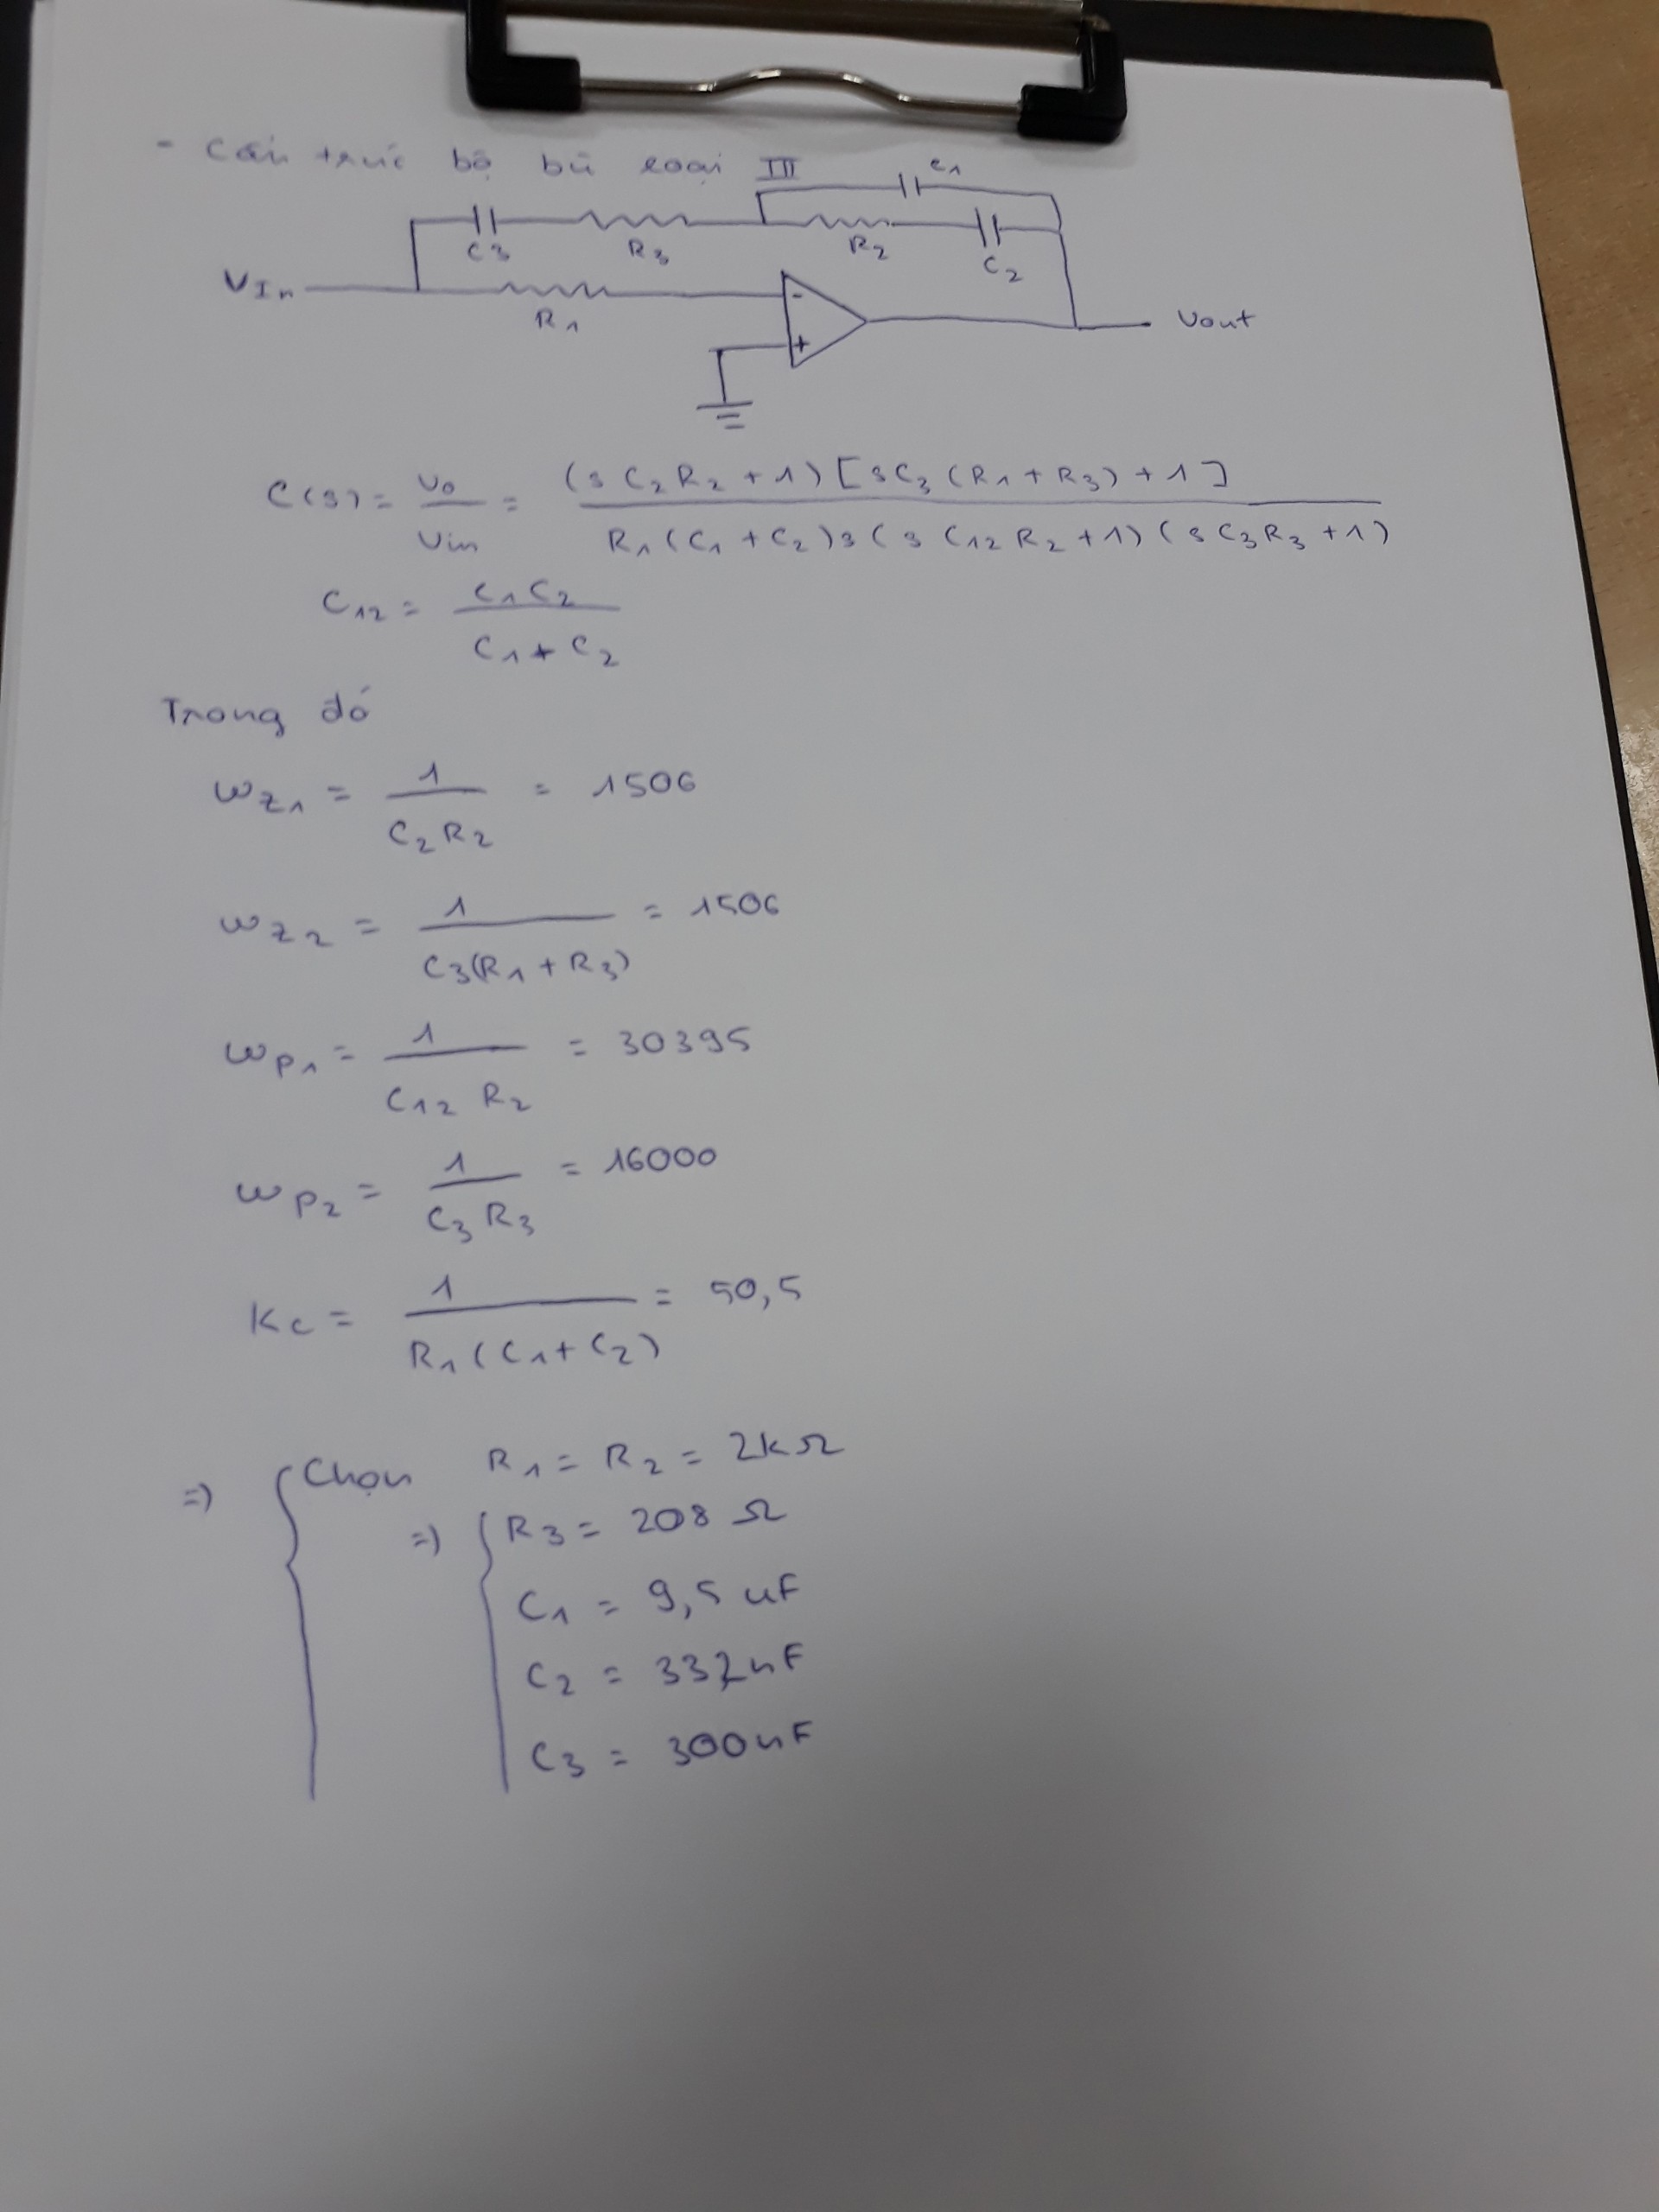 - Cấu trúc bộ bù loại III
C1
C3 R3 R2 C2
VIn
R1
-
+
Vout
C(s) = Vo / Vin = (s C2 R2 + 1) [s C3 (R1 + R3) + 1] / R1 (C1 + C2) s (s C12 R2 + 1) (s C3 R3 + 1)
C12 = C1 C2 / C1 + C2
Trong đó
ωz1 = 1 / C2 R2 = 1506
ωz2 = 1 / C3(R1 + R3) = 1506
ωp1 = 1 / C12 R2 = 30395
ωp2 = 1 / C3 R3 = 16000
Kc = 1 / R1 (C1 + C2) = 50,5
=> { Chọn R1 = R2 = 2kΩ
=> { R3 = 208 Ω
C1 = 9,5 uF
C2 = 332nF
C3 = 300nF